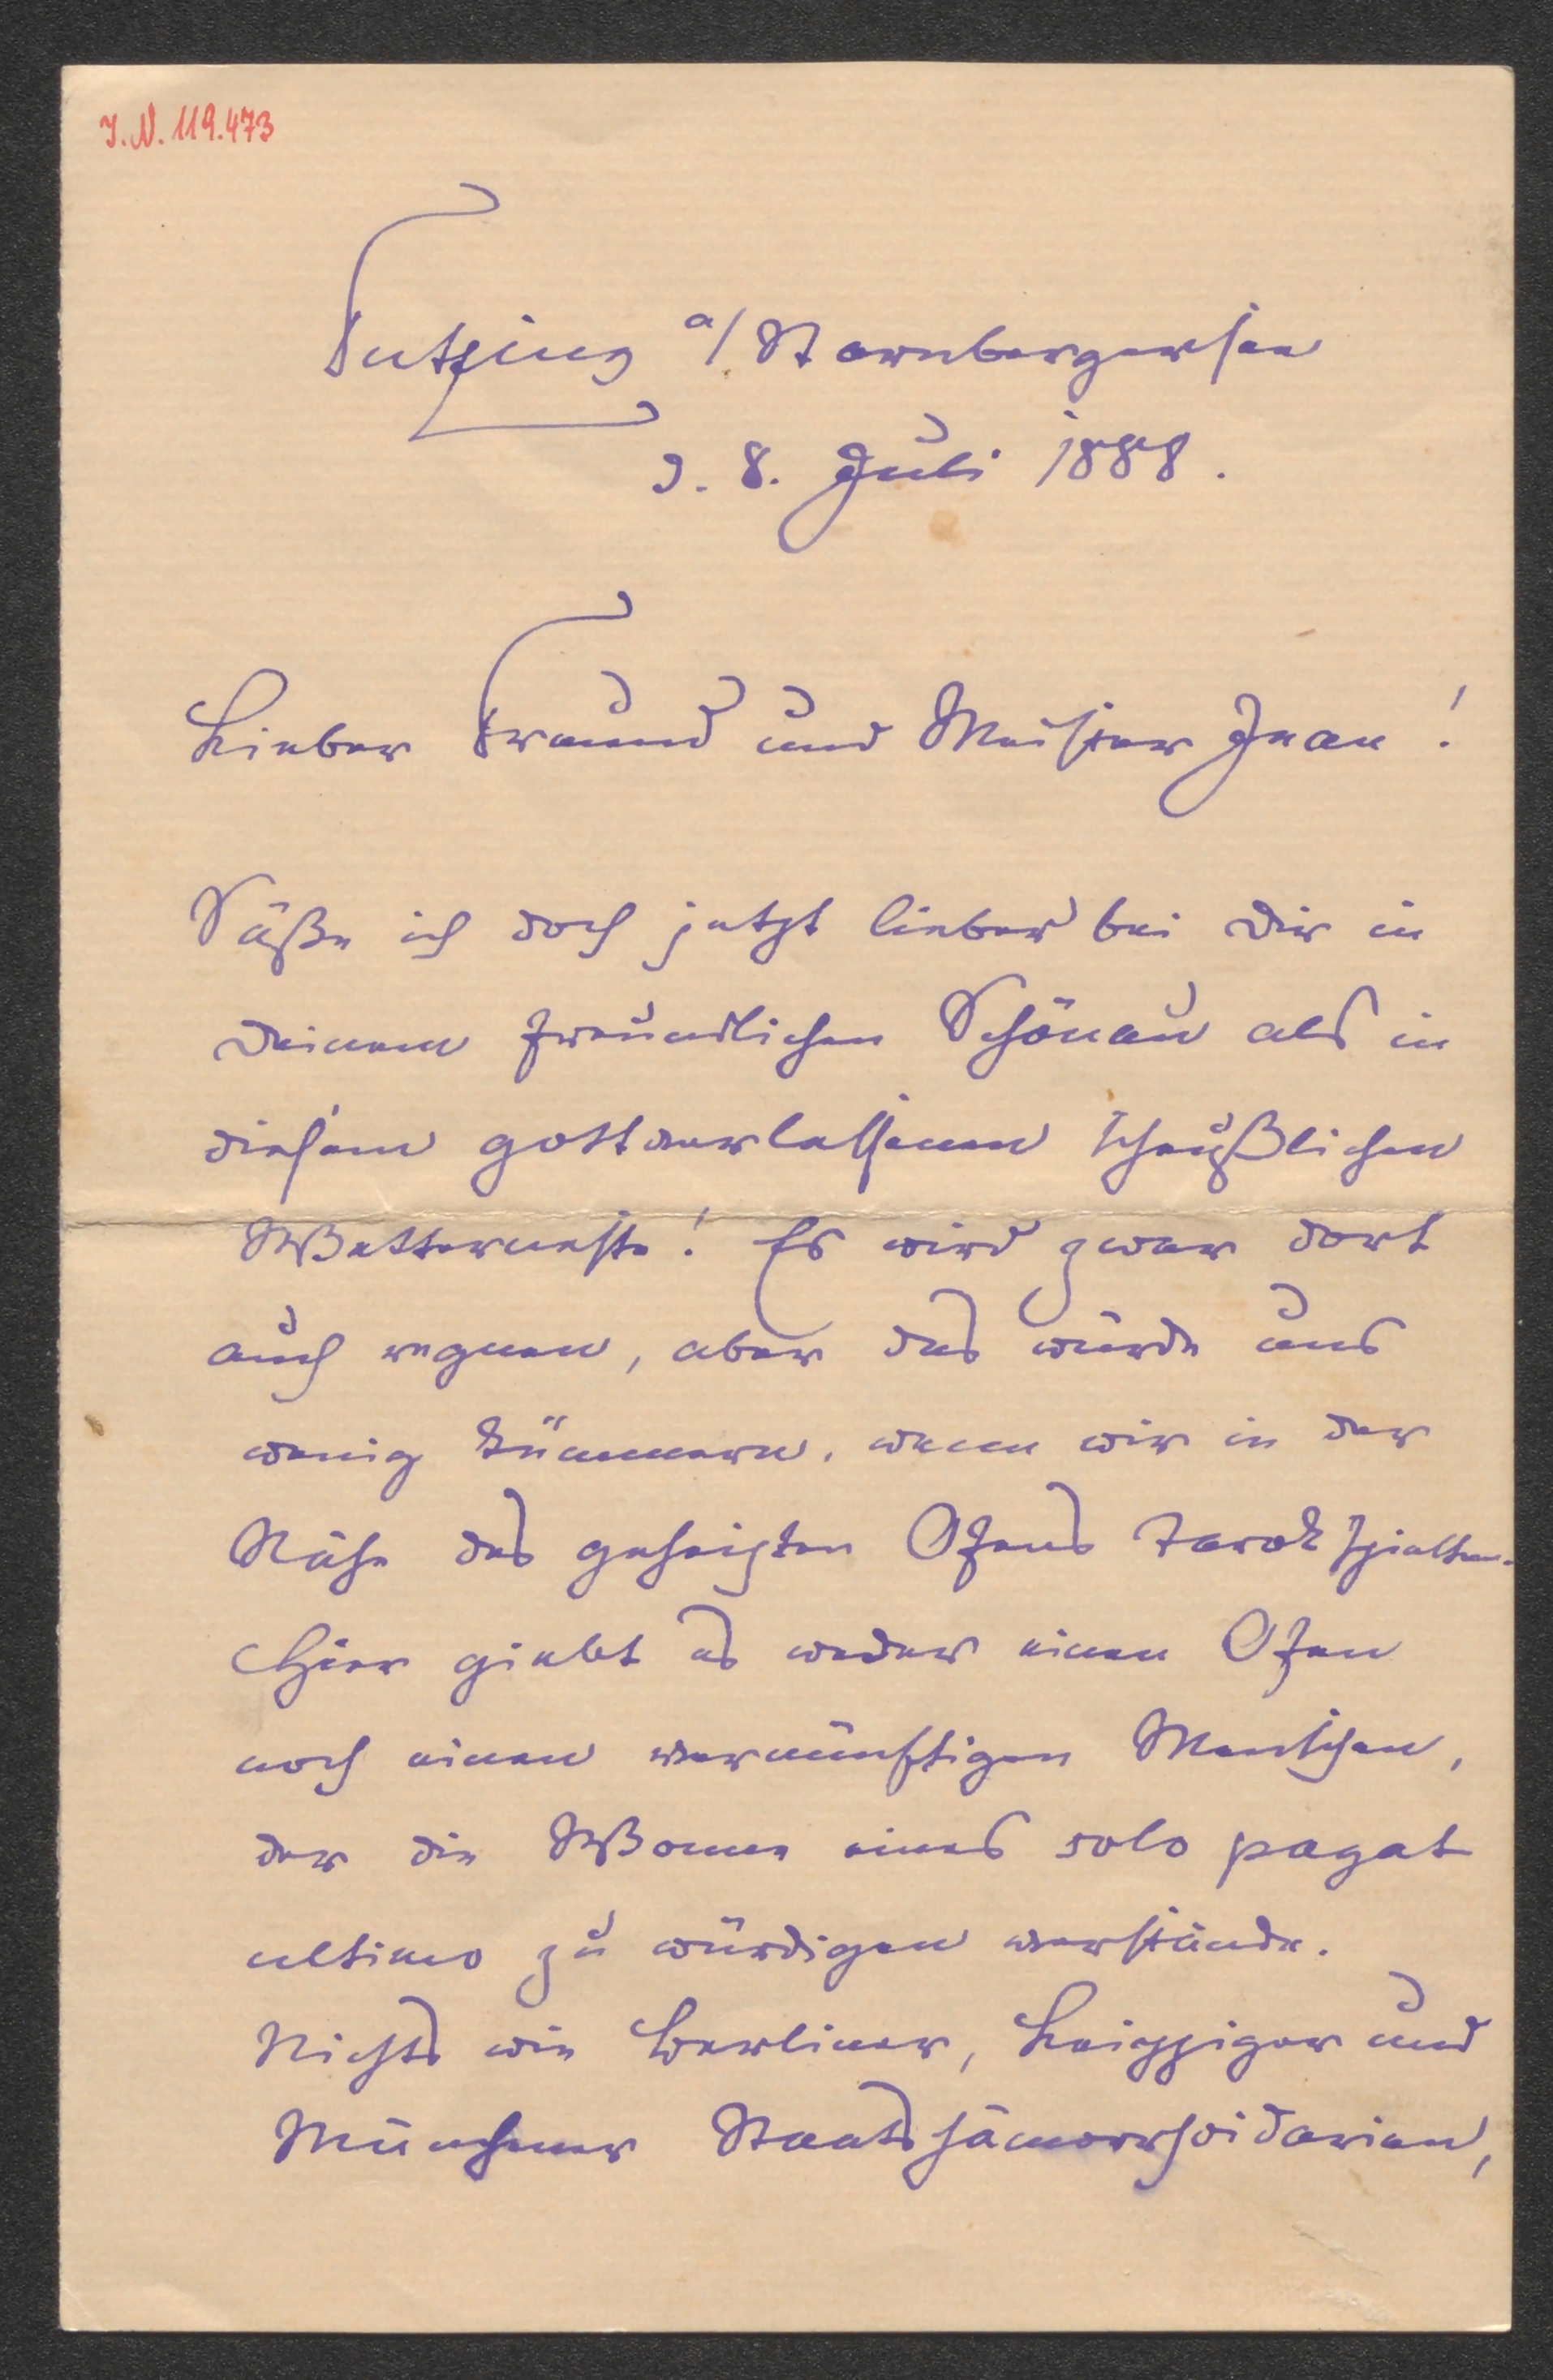 J.N. 119.473
Tutzing a/ Starnbergersee
d. 8. Juli 1888.
Lieber Freund und Meister Jean!
Säße ich doch jetzt lieber bei Dir in
Deinem freundlichen Schönau als in
diesem gottverlassenen scheußlichen
Wetterneste! Es wird zwar dort
auch regnen, aber das würde uns
wenig kümmern, wenn wir in der
Nähe des geheizten Ofens Tarok spielten.
Hier giebt es weder einen Ofen
noch einen vernünftigen Menschen,
der die Wonne eines solo pagat
ultimo zu würdigen verstände.
Nichts wie Berliner, Leipziger und
Münchener Staatshämorrhoidarien,